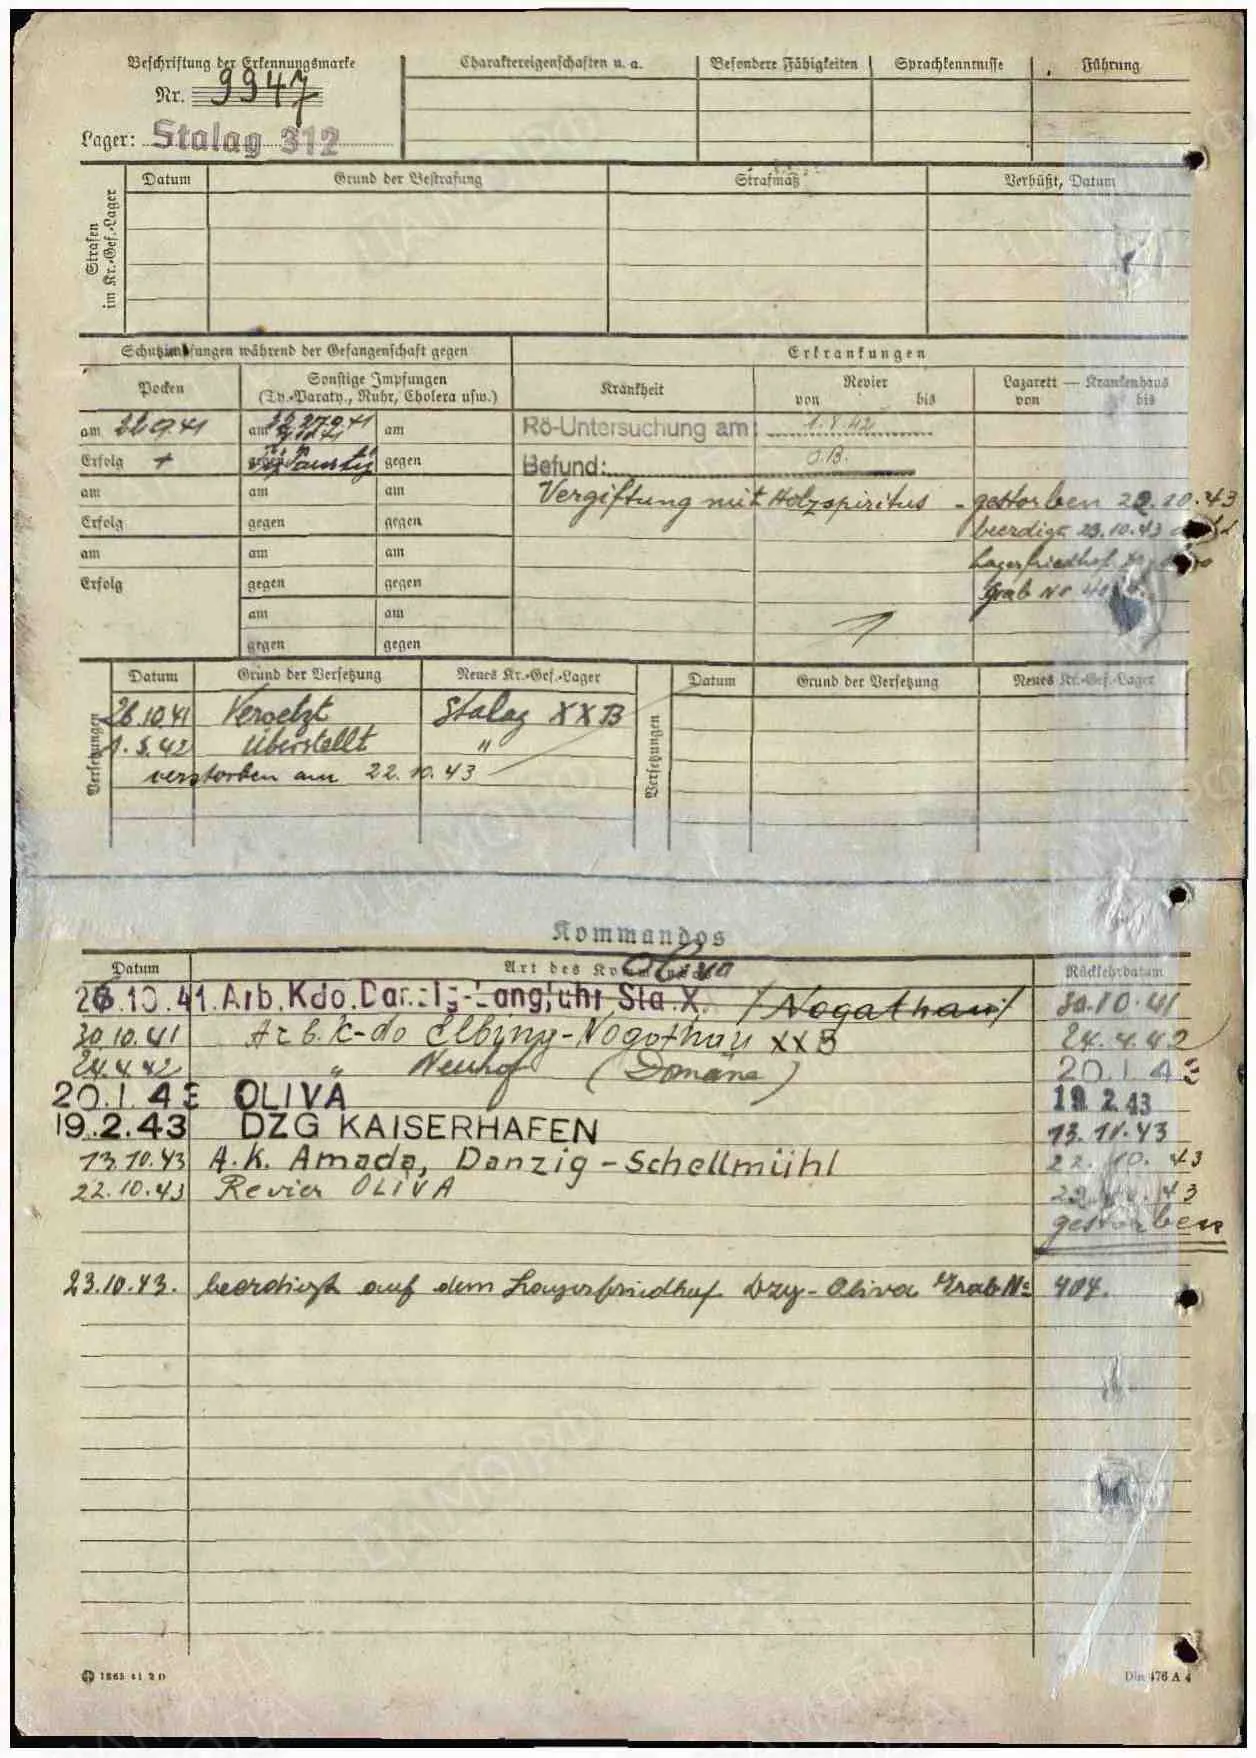 Beschriftung der Erkennungsmarke
Nr. 9947
Lager: Stalag 312
Charaktereigenschaften u. a.
Besondere Fähigkeiten
Sprachkenntnisse
Führung
Strafen im Kr.-Gef.-Lager
Datum
Grund der Bestrafung
Strafmaß
Verbüßt, Datum
Schutzimpfungen während der Gefangenschaft gegen
Erkrankungen
Pocken
Sonstige Impfungen
(Ty.-Paraty., Ruhr, Cholera usw.)
Krankheit
Revier
von bis
Lazarett — Krankenhaus
von bis
am 22.9.41 am am
Erfolg + gegen gegen
Rö-Untersuchung am: 1.8.42
Befund: o.B.
am am am
Erfolg gegen gegen
am am am
Erfolg gegen gegen
am am
gegen gegen
Vergiftung mit Holzspiritus - gestorben 22.10.43
beerdigt 23.10.43
Lagerfriedhof
Grab No
Versetzungen
Datum
Grund der Versetzung
Neues Kr.-Gef.-Lager
26.10.41 Versetzt Stalag XXB
1.5.42 überstellt "
verstorben am 22.10.43
Versetzungen
Datum
Grund der Versetzung
Neues Kr.-Gef.-Lager
Kommandos
Datum
Art des Kommandos
Rückkehrdatum
Oliva
26.10.41. Arb.Kdo.Danzig-Langfuhr Sta.X. /Nogathau/ 30.10.41
30.10.41 Arb.K-do Elbing-Nogathau XXB 24.4.42
24.4.42 " Neuhof (Domäne) 20.1.43
20.1.43 OLIVA 19.2.43
19.2.43 DZG KAISERHAFEN 13.10.43
13.10.43 A.K. Amada, Danzig-Schellmühl 22.10.43
22.10.43 Revier OLIVA 22.10.43
gestorben
23.10.43. beerdigt auf dem Lagerfriedhof Dzg-Oliva Grab No 404.
1865 41 2 D
Din 476 A 4